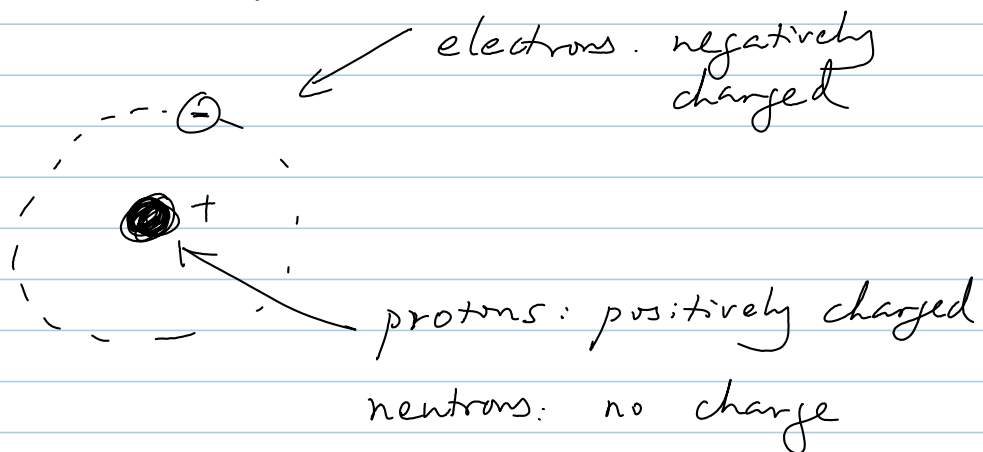 electrons. negatively
charged
-
+
protons: positively charged
neutrons: no charge